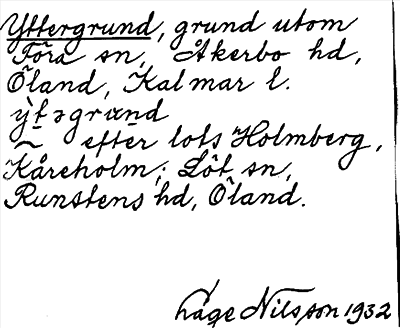 Yttergrund, grund utom
Föra sn, Åkerbo hd,
Öland, Kalmar l.
ỳt̄əgrɯnd
~ efter lots Holmberg,
Kåreholm, Löt sn,
Runstens hd, Öland.
Låge Nilsson 1932